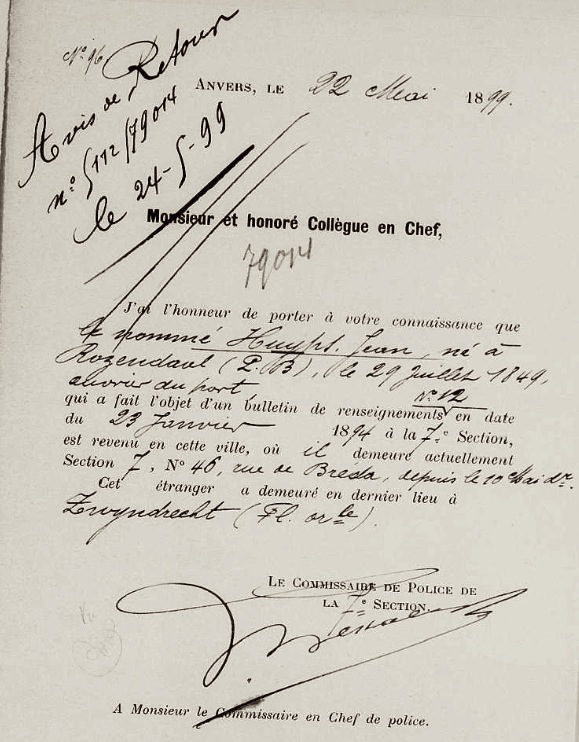 N° 96
Avis de Retour
n° 5112/79014
le 24-5-99
ANVERS, LE 22 Mai 1899.
Monsieur et honoré Collègue en Chef,
79014
J'ai l'honneur de porter à votre connaissance que
le nommé Huyps, Jean, né à
Rozendaal (P. B), le 29 Juillet 1849,
ouvrier du port
N° 12
qui a fait l'objet d'un bulletin de renseignements en date
du 23 Janvier 1894 à la 7e Section,
est revenu en cette ville, où il demeure actuellement
Section 7, N° 46, rue de Bréda, depuis le 10 Mai dr.
Cet étranger a demeuré en dernier lieu à
Zwyndrecht (Fl. orle).
LE COMMISSAIRE DE POLICE DE
LA 7e SECTION,
Vu
A Monsieur le Commissaire en Chef de police.